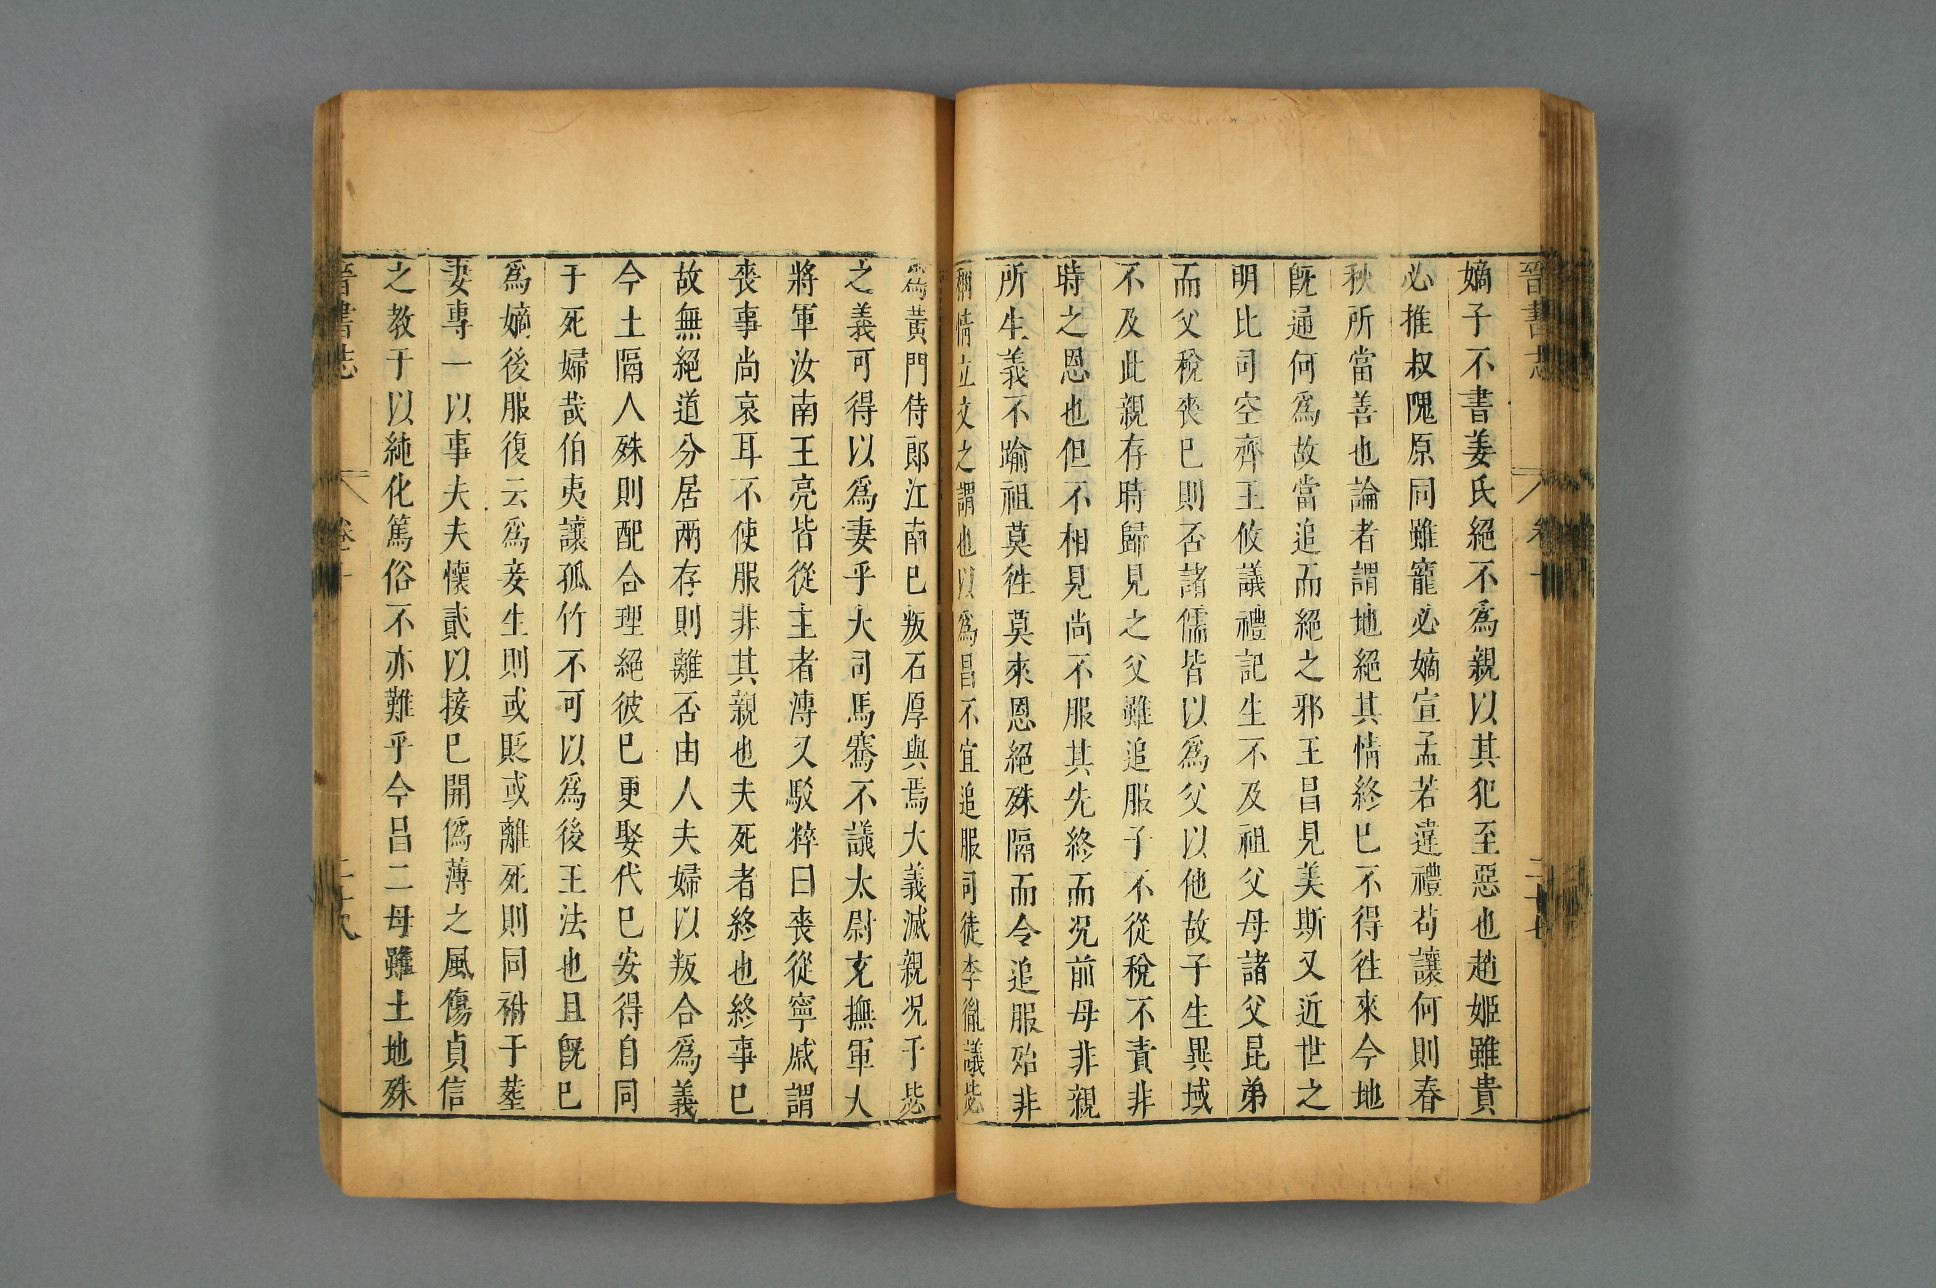 晉書志 卷十 二十七
嫡子不書姜氏絕不爲親以其犯至惡也趙姬雖貴
必推叔隗原同雖寵必嫡宣孟若違禮苟讓何則春
秋所當善也論者謂地絕其情終已不得徃來今地
旣通何爲故當追而絕之邪王昌見美斯又近世之
明比司空齊王攸議禮記生不及祖父母諸父昆弟
而父稅喪已則否諸儒皆以爲父以他故子生異域
不及此親存時歸見之父雖追服子不從稅不責非
時之恩也但不相見尚不服其先終而况前母非親
所生義不踰祖莫徃莫來恩絕殊隔而令追服殆非
稱情立文之謂也以爲昌不宜追服司徒李胤議毖
爲黃門侍郎江南已叛石厚與焉大義滅親况于毖
之義可得以爲妻乎大司馬騫不議太尉充撫軍大
將軍汝南王亮皆從主者溥又駁粹曰喪從寧戚謂
喪事尚哀耳不使服非其親也夫死者終也終事已
故無絕道分居兩存則離否由人夫婦以叛合爲義
今土隔人殊則配合理絕彼已更娶代已安得自同
于死婦哉伯夷讓孤竹不可以爲後王法也且旣已
爲嫡後服復云爲妾生則或貶或離死則同祔于葬
妻專一以事夫夫懷貳以接已開僞薄之風傷貞信
之教于以純化篤俗不亦難乎今昌二母雖土地殊
晉書志 卷十 二十八